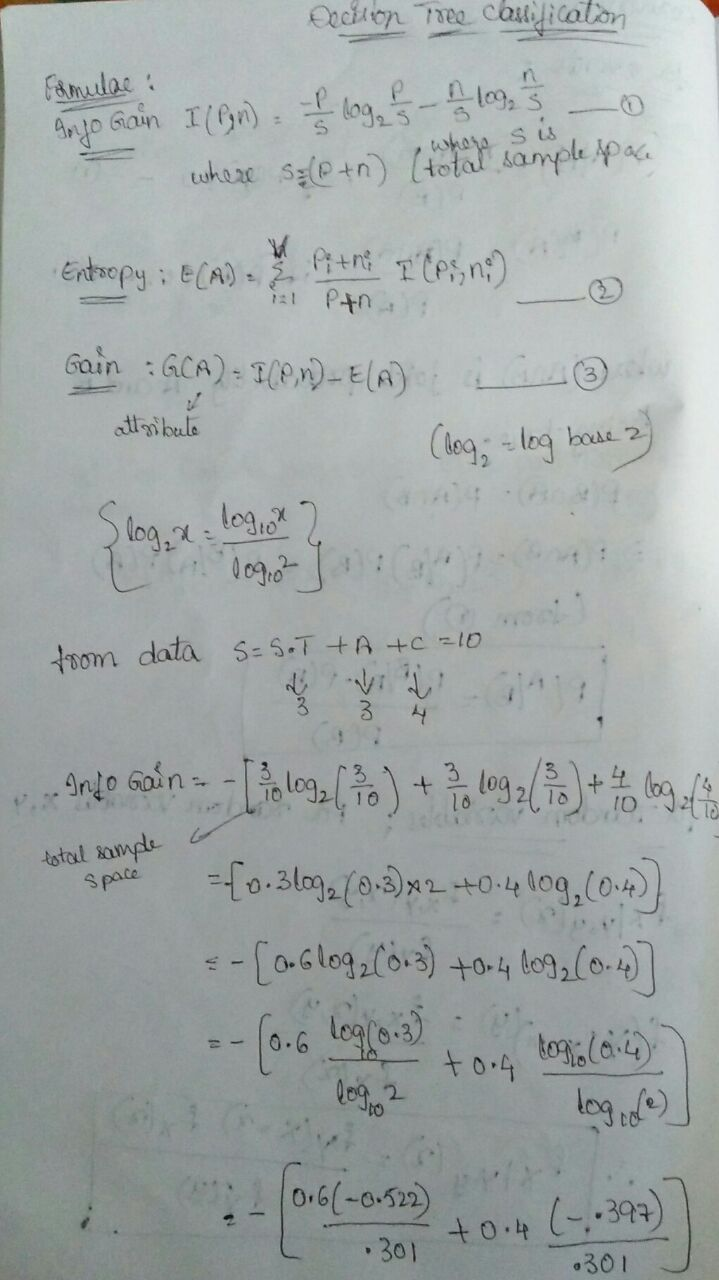 Decision Tree Classification
Formulae :
Info Gain I(P,n) = -P/S log₂ P/S - n/S log₂ n/S —— ①
where S=(P+n) (where S is total sample space
Entropy : E(A) = Σ_{i=1}^{V} (Pi+ni)/(P+n) I(Pi,ni) —— ②
Gain : G(A) = I(P,n) - E(A) —— ③
attribute
(log₂ = log base 2)
{log₂x = log₁₀x / log₁₀2}
from data S = S.T + A + C = 10
↓ ↓ ↓
3 3 4
∴ Info Gain = -[3/10 log₂(3/10) + 3/10 log₂(3/10) + 4/10 log₂(4/10
total sample
space
= -[0.3 log₂(0.3)×2 + 0.4 log₂(0.4)]
= -[0.6 log₂(0.3) + 0.4 log₂(0.4)]
= -[0.6 log₁₀(0.3) / log₁₀2 + 0.4 log₁₀(0.4) / log₁₀(2)]
= -[0.6(-0.522) / .301 + 0.4 (-.397) / .301]